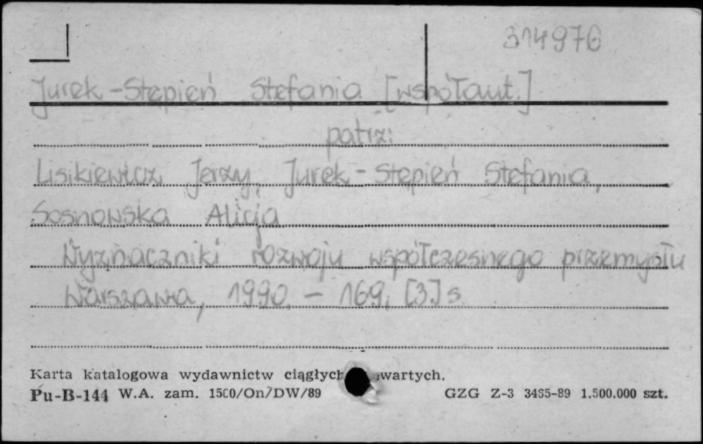 314976
Jurek-Stępień Stefania [współaut.]
patrz:
Lisikiewicz Jerzy, Jurek-Stępień Stefania,
Sosnowska Alicja
Wyznaczniki rozwoju współczesnego przemysłu
Warszawa, 1990. - 169, [3] s
Karta katalogowa wydawnictw ciągłych wartych.
Pu-B-144 W.A. zam. 1500/On/DW/89 GZG Z-3 3485-89 1.500.000 szt.